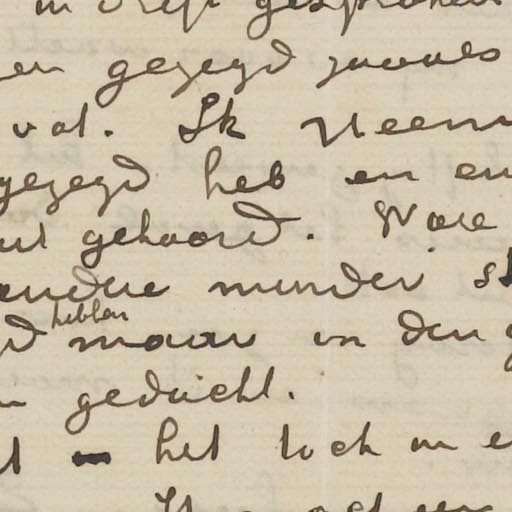 in drift gesproken
en gezegd zooals
val. Ik neem
gezegd heb en en
uit gehoord. Ware
andere minder st
d hebben maar in den g
gedacht.
t het toch in e